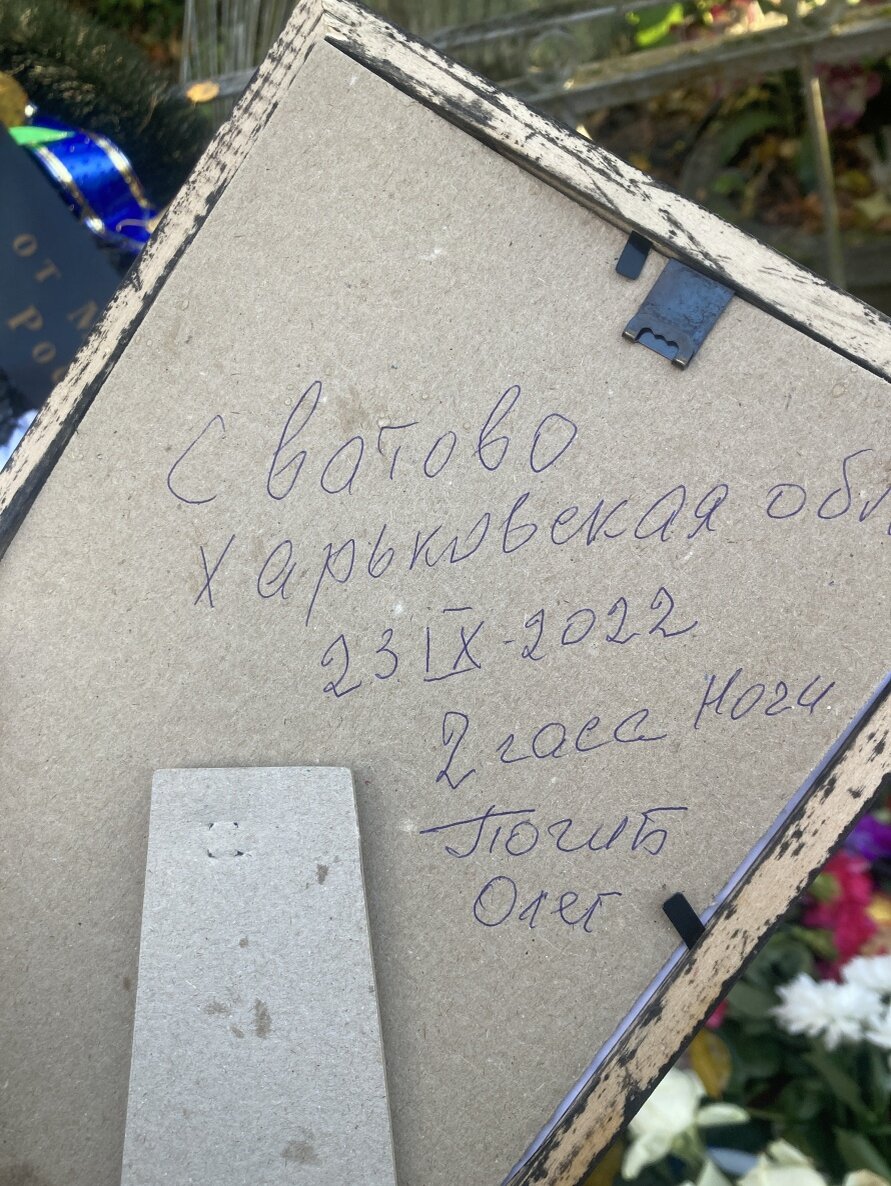 от
Сватово
Харьковская обл
23 IX-2022
2 часа Ночи
Погиб
Олег